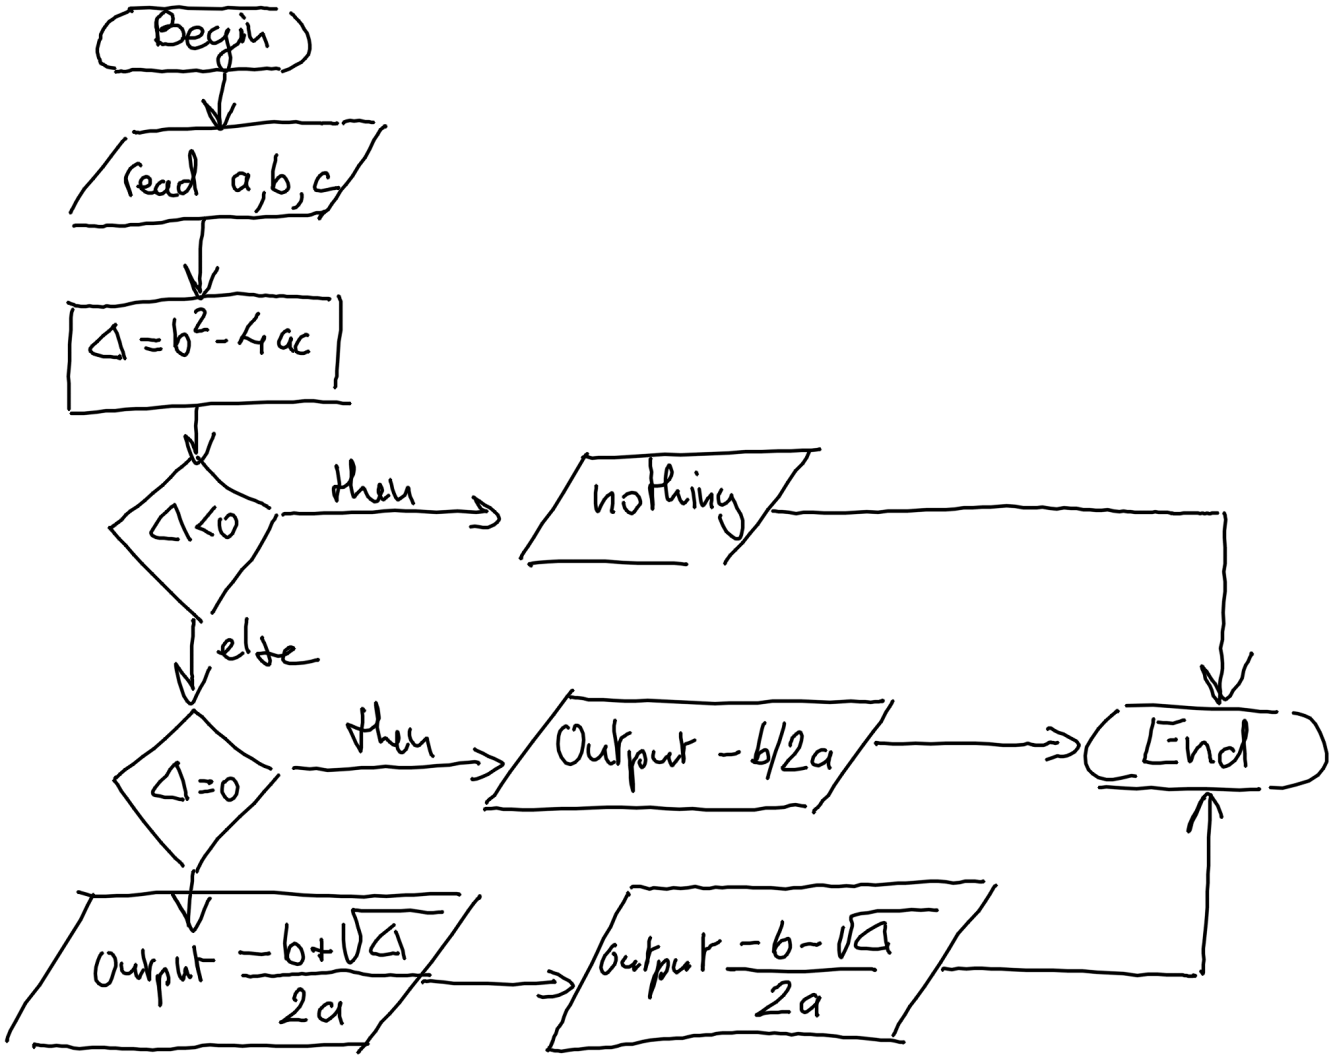 Begin
read a, b, c
Δ = b² - 4ac
Δ<0
then
nothing
else
Δ=0
then
Output -b/2a
End
Output (-b+√Δ)/2a
Output (-b-√Δ)/2a